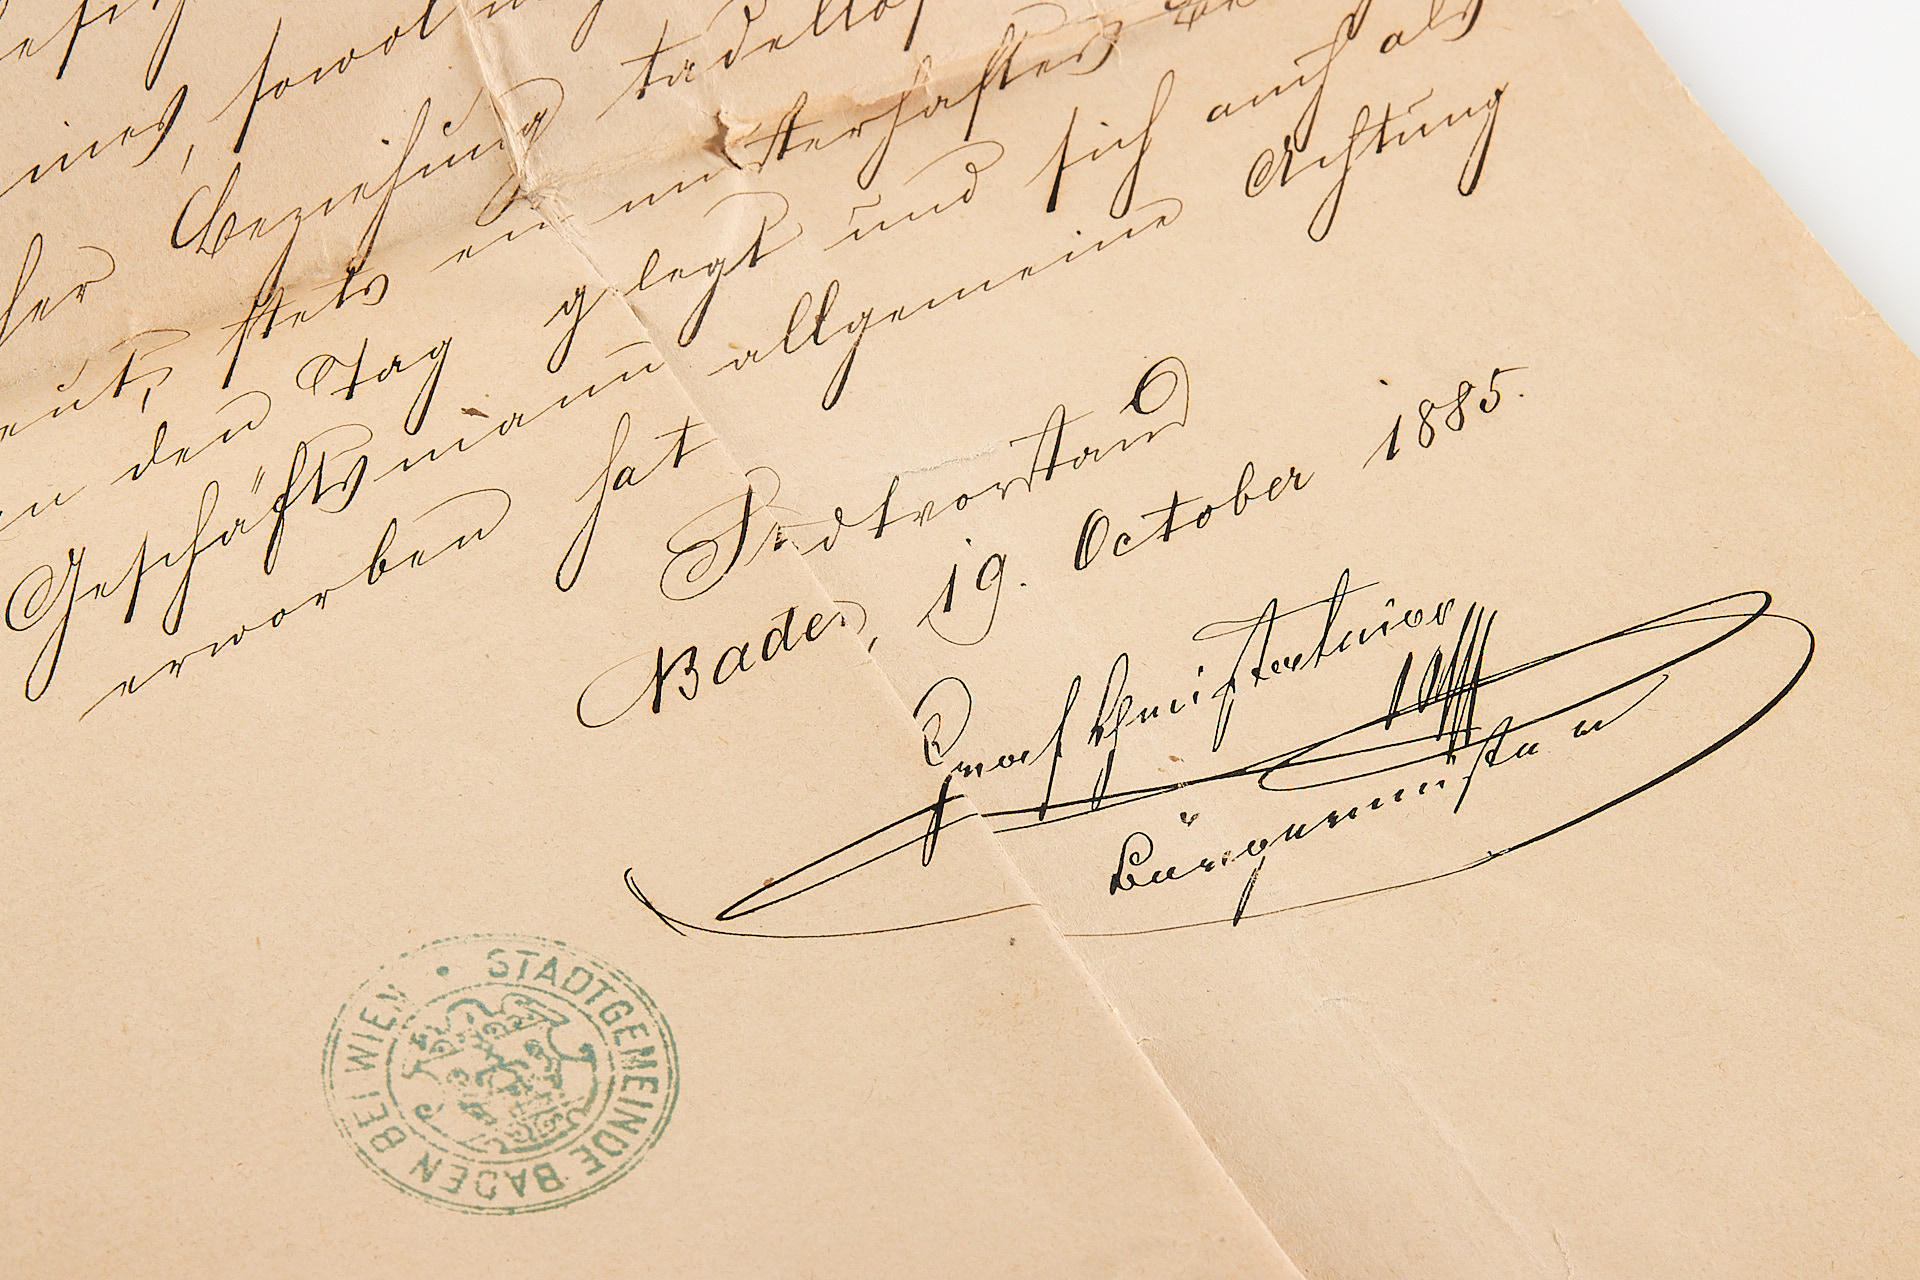 sowol
ines, Beziehung tadellos
her stets ein musterhaftes
eut, den Tag gelegt und sich auch als
Geschäftsmann allgemeine Achtung
erworben hat
Stadtvorstand
Baden, 19. October 1885.
Bürgermeister
STADTGEMEINDE BADEN BEI WIEN